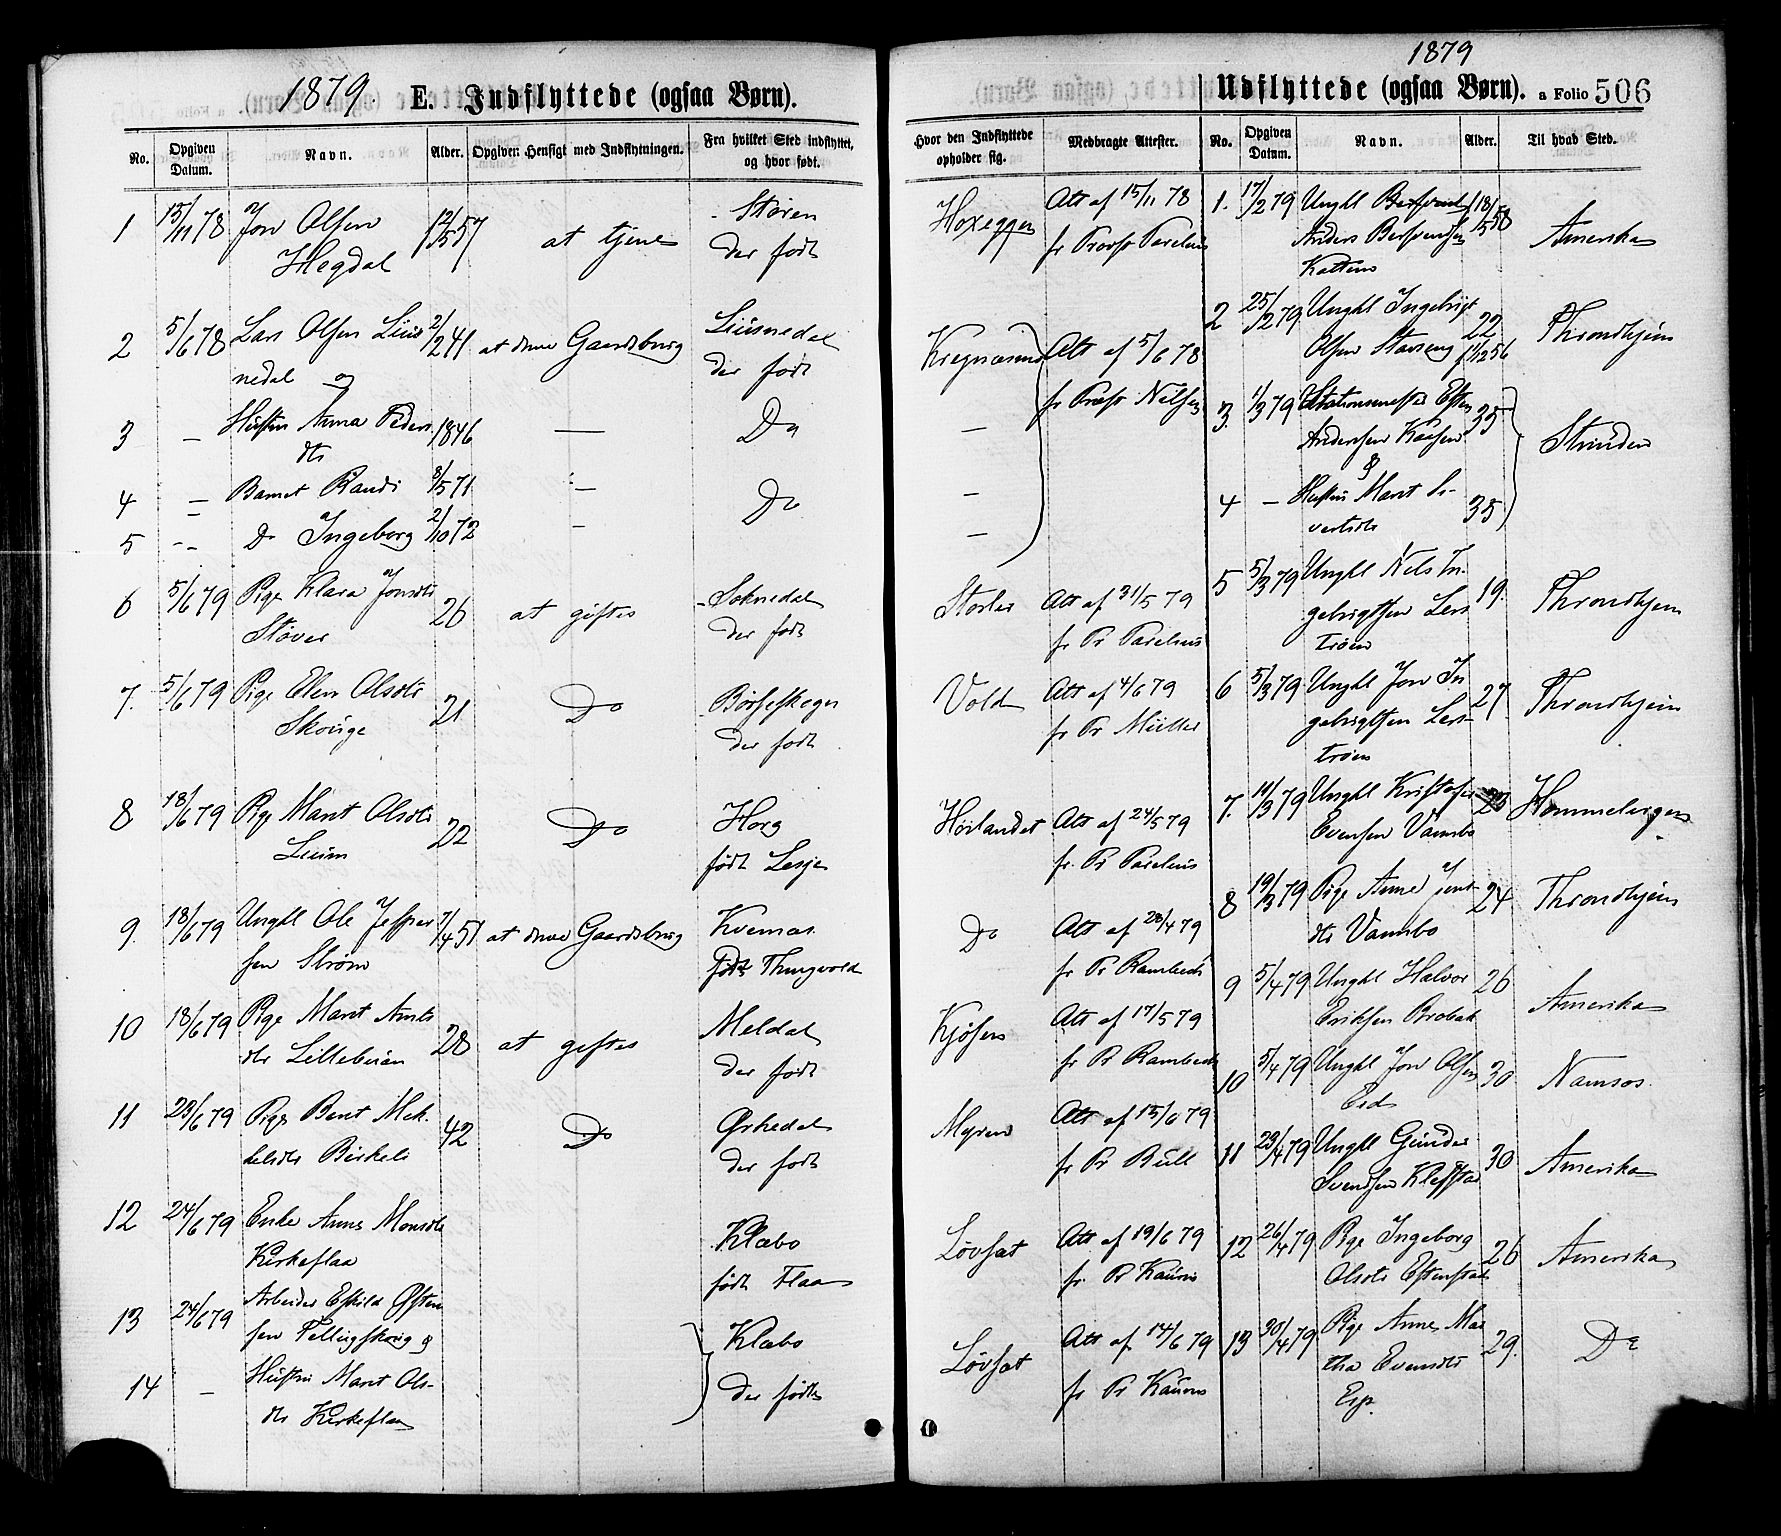 1879
E. Indflyttede (ogsaa Børn).
No.
Opgiven Datum.
Navn.
Alder.
Opgiven Hensigt med Indflytningen.
Fra hvilket Sted indflyttet, og hvor født.
1 15/11 78 Jon Olsen 12/5 57 at tjene Støren
Hegdal der født
2 5/6 78 Lars Olsen 2/2 41 at drive Gaardsbrug
nedal og der født
3 — Hustru Anna Peders 1846 — Do
dtr
4 — Barnet Randi 8/5 71 — Do
5 — Do Ingeborg 2/10 72 —
6 5/6 79 Pige Klara Jonsdtr 26 at giftes Soknedal
Støver der født
7. 5/6 79 Pige Elen Olsdtr 21 Do Børseskogn
Skouge der født
8 18/6 79 Pige Marit Olsdtr 22 Do Horg
født Lesje
9. 18/6 79 Ungkl Ole Jesper 7/4 51 at drive Gaardsbrug Kvernæs
sen Strøm født Thingvold
10 18/6 79 Pige Marit Arnts 28 at giftes Meldal
dtr der født
11 23/6 79 Pige Berit Mek 42 Do Ørkedal
kelsdtr der født
12 24/6 79 Enke Anne Monsdtr Klæbo
Kirkeflaa født Flaa
13 24/6 79 Arbeider Eskild Østen
sen Tellugskoug og Klæbo
14 — Hustru Marit Ols-
dtr Kirkeflaa der født
1879
Udflyttede (ogsaa Børn).
a Folio 506
Hvor den Indflyttede opholder sig.
Medbragte Attester.
No.
Opgiven Datum.
Navn.
Alder.
Til hvad Sted.
Hoxeggen Att af 15/11 78
fr Provst Parelius
Att af 5/6 78
fr Præst Nilsen
—
—
—
Att af 31/5 79
fr Pr Parelius
Vold Att af 4/6 79
fr Pr Müller
Høilandet Att af 24/5 79
fr. Pr Parelius
Do Att af 28/4 79
fr Pr Rambech
Kjøsen Att af 17/5 79
fr Pr Rambech
Myren Att af 15/6 79
fr Pr Bull
Løvset Att af 19/6 79
fr. Pr Kaurin
Løvset Att af 14/6 79
fr Pr Kaurin
1. 17/2 79 Ungkl 18/5 58 Amerika
Anders Bersvendsen
2 25/2 79 Ungkl Ingebrigt 22 Throndhjem
Olsen Stavseng 11/12 56
3. 1/3 79 Stationsmester Esten 35 Strinden
Andersen Kaasen
&
4 — Hustru Marit Si- 35
vertsdtr
5 5/3 79 Ungkl Nels In- 19. Throndhjem
gebrigtsen Lers
trøen
6 5/3 79 Ungkl Jon In 27 Throndhjem
gebrigtsen Lers-
trøen
7. 11/3 79 Ungkl Kristofer Hommelvigen
Evensen Vambo
8 19/3 79 Pige Anne Jens 24 Throndhjem
dtr Vambo
9 5/4 79 Ungkl Halvor 26 Amerika
Eriksen Brobak
10 5/4 79 Ungkl Jon Olsen 30 Namsos.
Eid
11 23/4 79 Ungkl Gunder 30 Amerika
Svendsen Klefstad
12 26/4 79 Pige Ingeborg 26 Amerika
Olsdtr Estenstad
13 30/4 79 Pige Anne Mar 29. Do
tha Evensdtr
Esp.